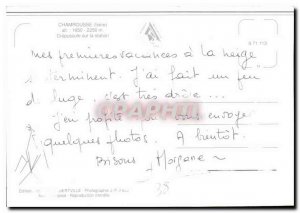 CHAMROUSSE (Isère)
alt : 1650 - 2250 m
Crépuscule sur la station
mes premières vacances à la neige
se terminent. J'ai fait un peu
de luge c'est très drôle...
j'en profite pour vous envoyer
quelques photos. A bientôt.
Bisous Morgane
38